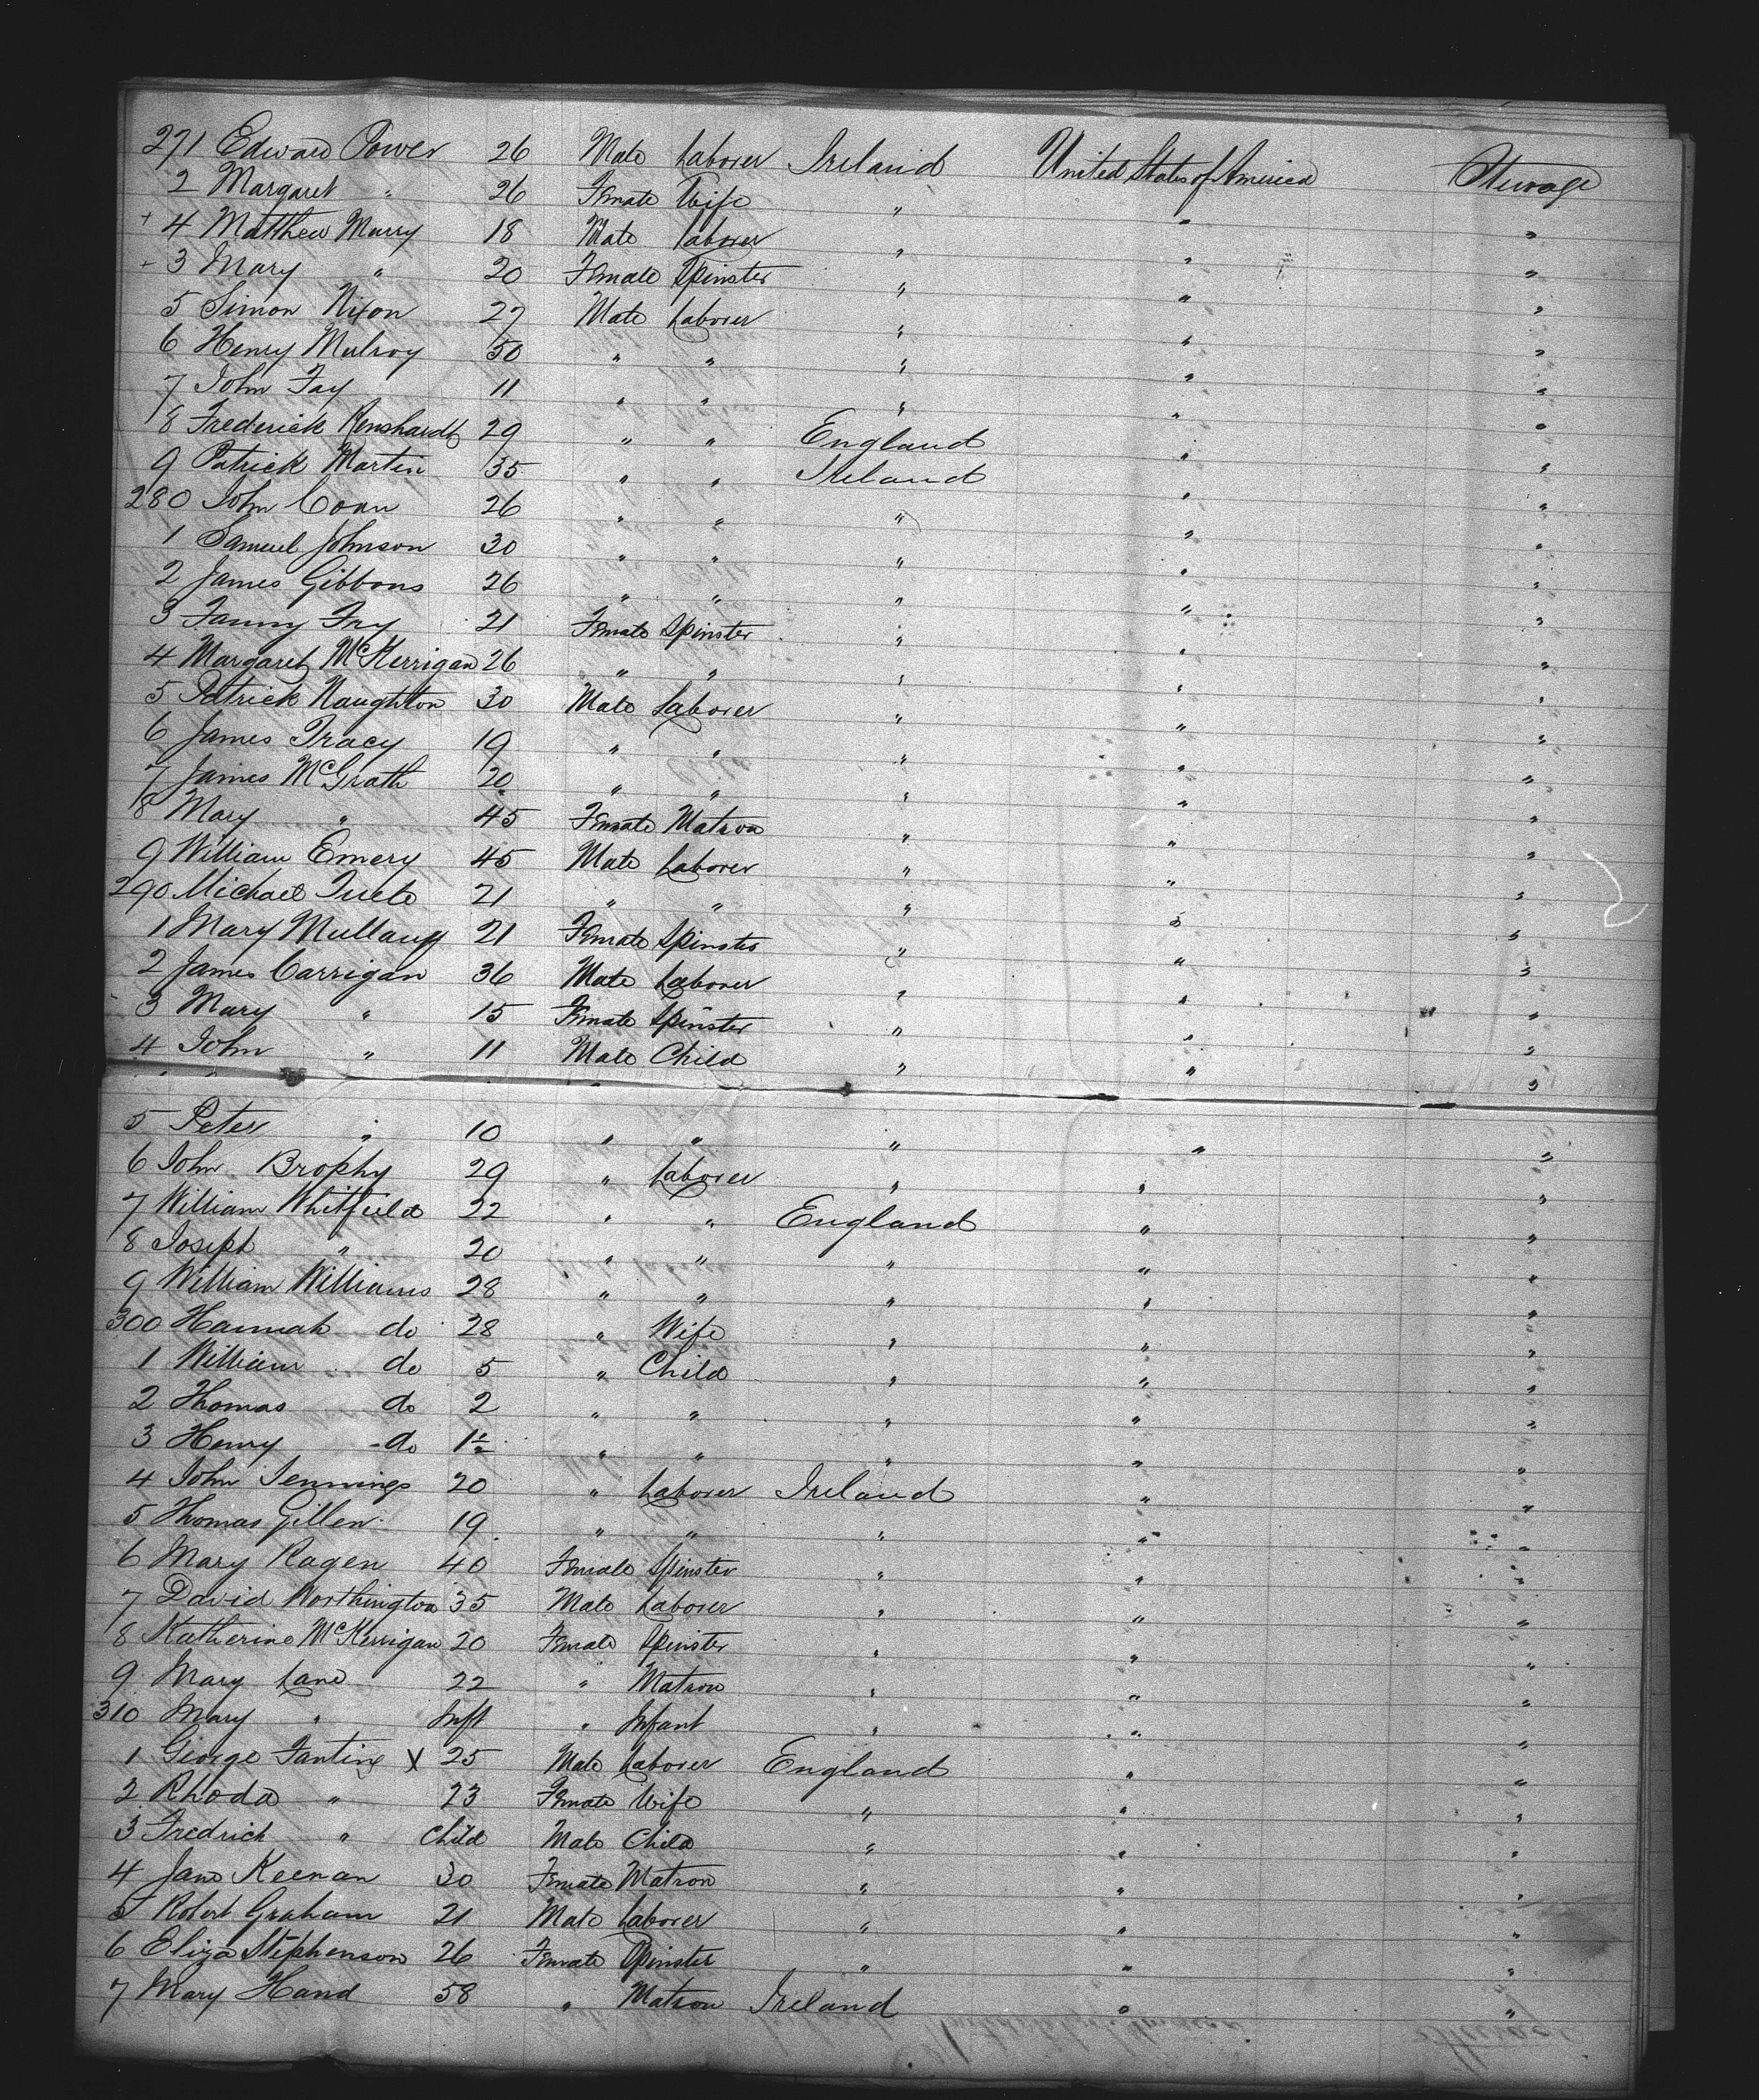 271 Edward Power 26 Male Laborer Ireland United States of America Steerage
2 Margaret " 26 Female Wife " " "
+ 4 Matthew Murry 18 Male Laborer " " "
+ 3 Mary " 20 Female Spinster " " "
5 Simon Nixon 27 Male Laborer " " "
6 Henry Mulroy 50 " " " " "
7 John Fay 11 " " " " "
8 Frederick Renshardt 29 " " England " "
9 Patrick Martin 35 " " Ireland " "
280 John Coan 26 " " " " "
1 Samuel Johnson 30 " " " " "
2 James Gibbons 26 " " " " "
3 Fanny Fry 21 Female Spinster " " "
4 Margaret McKerrigan 26 " " " " "
5 Patrick Naughton 30 Male Laborer " " "
6 James Tracy 19 " " " " "
7 James McGrath 20 " " " " "
8 Mary " 45 Female Matron " " "
9 William Emery 45 Male Laborer " " "
290 Michael 21 " " " " "
1 Mary 21 Female Spinster " " "
2 James Carrigan 36 Male Laborer " " "
3 Mary " 15 Female Spinster " " "
4 John " 11 Male Child " " "
5 Peter " 10 " " " " "
6 John Brophy 29 " Laborer " " "
7 William Whitfield 22 " " England " "
8 Joseph " 20 " " " " "
9 William Williams 28 " " " " "
300 Hannah do 28 " Wife " " "
1 William do 5 " Child " " "
2 Thomas do 2 " " " " "
3 Henry do 1½ " " " " "
4 John Jennings 20 " Laborer Ireland " "
5 Thomas Gillen 19 " " " " "
6 Mary Ragen 40 Female Spinster " " "
7 David Worthington 35 Male Laborer " " "
8 Katherine McKerrigan 20 Female Spinster " " "
9 Mary Lane 22 " Matron " " "
310 Mary " Inft " Infant " " "
1 George Fantine X 25 Male Laborer England " "
2 Rhoda " 23 Female Wife " " "
3 Fredrick " Child Male Child " " "
4 Jane Keenan 30 Female Matron " " "
5 Robert Graham 21 Male Laborer " " "
6 Eliza Stephenson 26 Female Spinster " " "
7 Mary Hand 58 " Matron Ireland " "